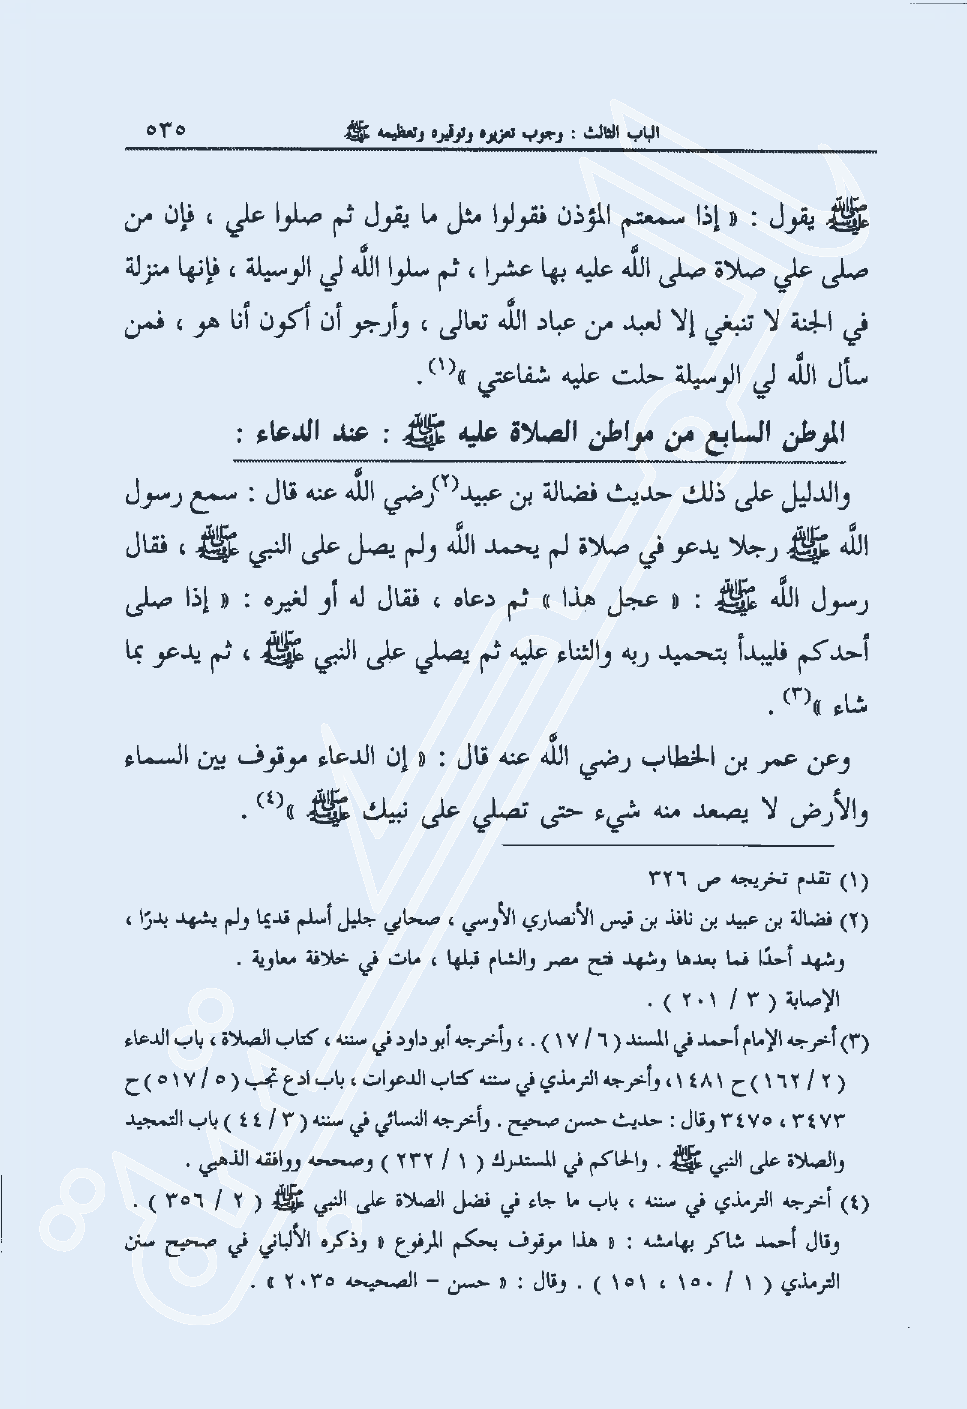 الباب الثالث : وجوب تعزيره وتوقيره وتعظيمه ﷺ ٥٣٥
ﷺ يقول : « إذا سمعتم المؤذن فقولوا مثل ما يقول ثم صلوا علي ، فإن من
صلى علي صلاة صلى اللَّه عليه بها عشرا ، ثم سلوا اللَّه لي الوسيلة ، فإنها منزلة
في الجنة لا تنبغي إلا لعبد من عباد اللَّه تعالى ، وأرجو أن أكون أنا هو ، فمن
سأل اللَّه لي الوسيلة حلت عليه شفاعتي »(١) .
الموطن السابع من مواطن الصلاة عليه ﷺ : عند الدعاء :
والدليل على ذلك حديث فضالة بن عبيد(٢)رضي اللَّه عنه قال : سمع رسول
اللَّه ﷺ رجلا يدعو في صلاة لم يحمد اللَّه ولم يصل على النبي ﷺ ، فقال
رسول اللَّه ﷺ : « عجل هذا » ثم دعاه ، فقال له أو لغيره : « إذا صلى
أحدكم فليبدأ بتحميد ربه والثناء عليه ثم يصلي على النبي ﷺ ، ثم يدعو بما
شاء »(٣) .
وعن عمر بن الخطاب رضي اللَّه عنه قال : « إن الدعاء موقوف بين السماء
والأرض لا يصعد منه شيء حتى تصلي على نبيك ﷺ »(٤) .
(١) تقدم تخريجه ص ٣٢٦
(٢) فضالة بن عبيد بن نافذ بن قيس الأنصاري الأوسي ، صحابي جليل أسلم قديما ولم يشهد بدرًا ،
وشهد أحدًا فما بعدها وشهد فتح مصر والشام قبلها ، مات في خلافة معاوية .
الإصابة ( ٣ / ٢٠١ ) .
(٣) أخرجه الإمام أحمد في المسند ( ٦ / ١٧ ) . ، وأخرجه أبو داود في سننه ، كتاب الصلاة ، باب الدعاء
( ٢ / ١٦٢ ) ح ١٤٨١ ، وأخرجه الترمذي في سننه كتاب الدعوات ، باب ادع تجب ( ٥ / ٥١٧ ) ح
٣٤٧٣ ، ٣٤٧٥ وقال : حديث حسن صحيح . وأخرجه النسائي في سننه ( ٣ / ٤٤ ) باب التمجيد
والصلاة على النبي ﷺ . والحاكم في المستدرك ( ١ / ٢٣٢ ) وصححه ووافقه الذهبي .
(٤) أخرجه الترمذي في سننه ، باب ما جاء في فضل الصلاة على النبي ﷺ ( ٢ / ٣٥٦ ) .
وقال أحمد شاكر بهامشه : « هذا موقوف بحكم المرفوع « وذكره الألباني في صحيح سنن
الترمذي ( ١ / ١٥٠ ، ١٥١ ) . وقال : « حسن – الصحيحه ٢٠٣٥ » .